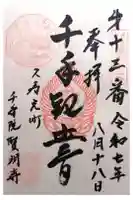 第十三番
令和七年
奉拝
八月十八日
千手観世音
久居元町
千手院賢明寺